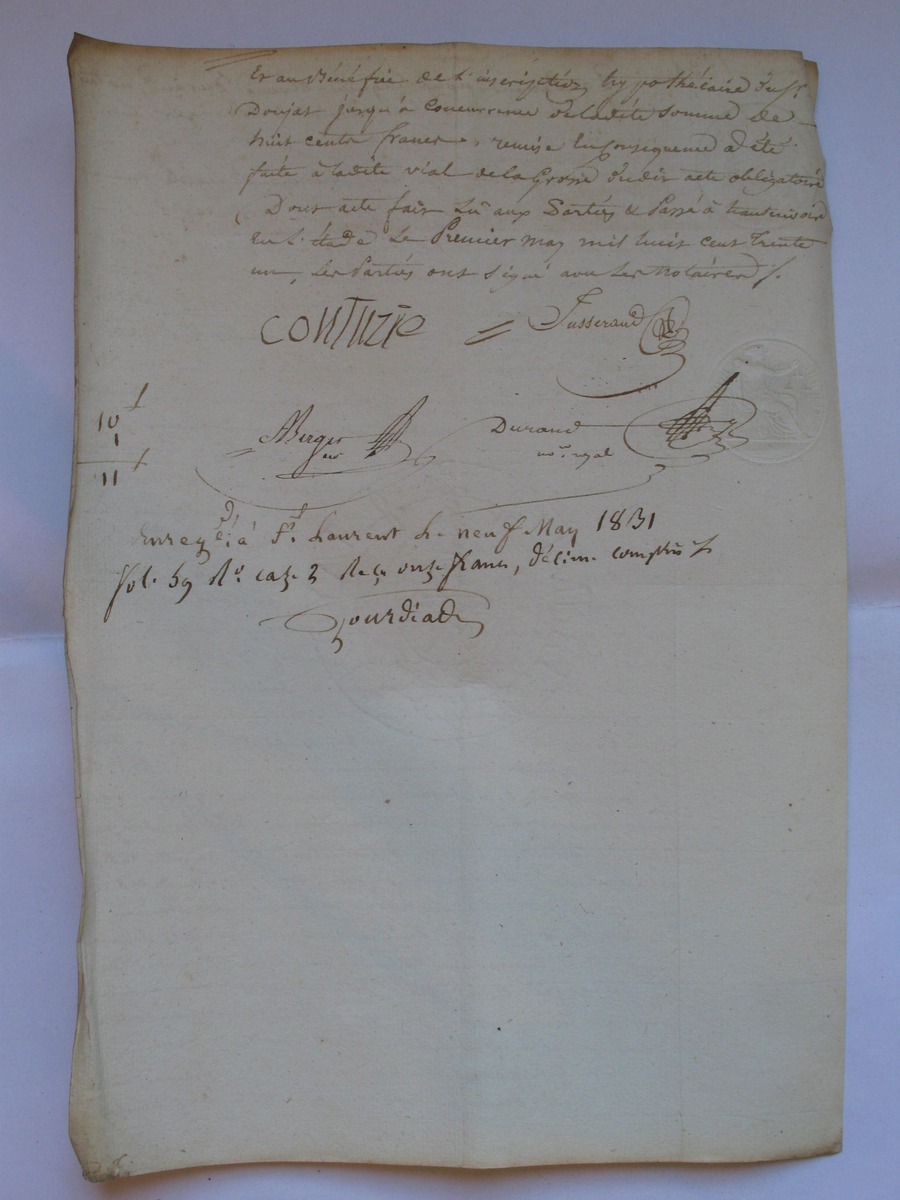 Et au Bénéfice de l'inscription hypothécaire du Sr.
Doujat jusqu'à concurrence de ladite somme de
huit cents francs, remise en conséquence a été
faite à ladite vial de la Grosse dudit acte obligatoire
Dont acte fait Lu aux Parties & Passé à
en l'étude Le Premier may mil huit cent trente
un, Les Parties ont signé avec les Notaires /.
COUTUZIE = Jusserand
10 f
1
11 f
Berger nre Durand
nore royal
Enregé à St Laurent le neuf May 1831
fol. 59 Ro. case 2 Reçu onze francs, décime compris